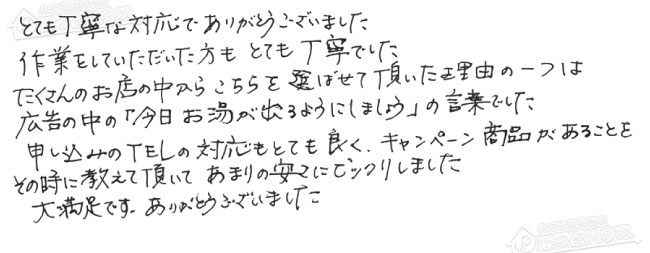 とても丁寧な対応でありがとうございました
作業をしていただいた方もとても丁寧でした
たくさんのお店の中からこちらを選ばせて頂いた理由の一つは
広告の中の「今日お湯が出るようにしましょう」の言葉でした
申し込みのTELの対応もとても良く、キャンペーン商品があることを
その時に教えて頂いてあまりの安さにビックリしました
大満足です。ありがとうございました